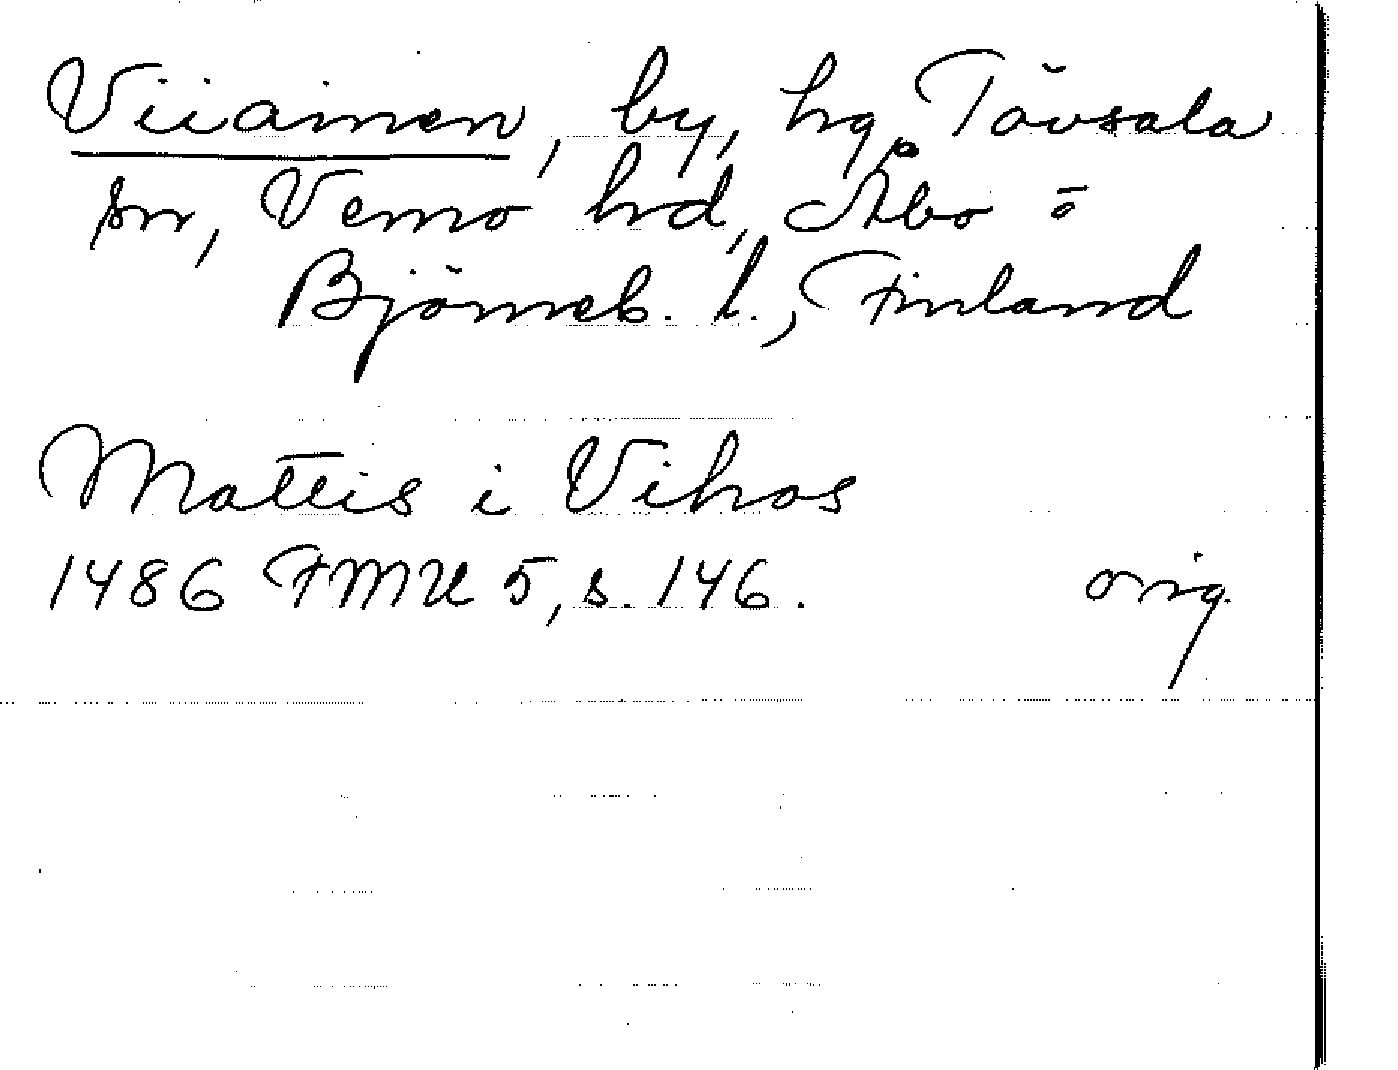 Viiainen, by, hg, Tövsala
sn, Vemo hd, Åbo o
Björneb. l., Finland
Mattis i Vihas
1486 FMU 5, s. 146. orig.